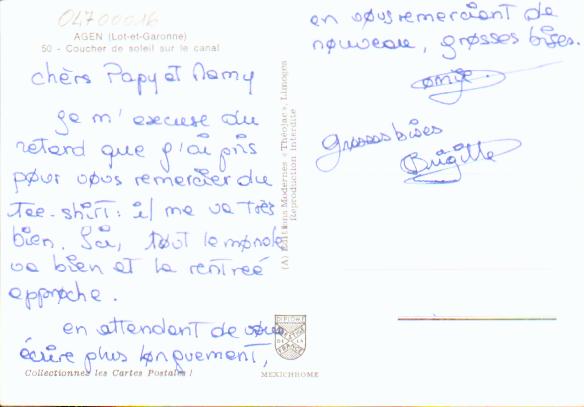 04700016
AGEN (Lot-et-Garonne)
50 - Coucher de soleil sur le canal
chèrs Papy et Mamy
Je m'excuse du
retard que j'ai pris
pour vous remercier du
tee-shirt: il me va très
bien. Ici, tout le monde
va bien et la rentreé
approche.
en attendant de vous
écrire plus longuement,
en vous remerciant de
nouveau, grosses bises.
grosses bises
Brigitte
(A) Editions Modernes « Théojac », Limoges
Reproduction interdite
DIPLOME
PRESTIGE
DE LA
FRANCE
Collectionnez les Cartes Postales !
MEXICHROME